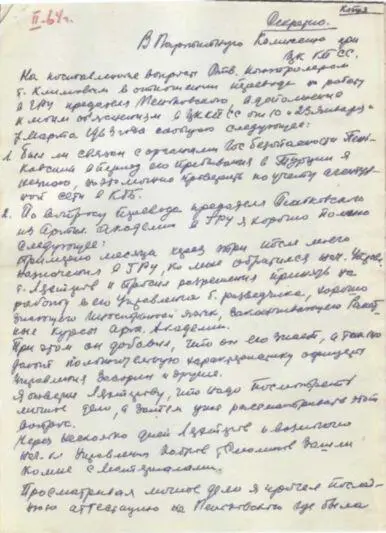 Копия
II-64г.
Секретно.
В Партийную Комиссию при
ЦК КПСС.
На поставленные вопросы Отв. контролером
т. Климовым в отношении перевода на работу
в ГРУ предателя Пеньковского, в дополнение
к моим объяснениям в ЦК КПСС от 10 и 23 января и
7 марта 1963 года сообщаю следующее:
1. Был ли связан с органами Госбезопасности Пень-
ковский в период его пребывания в Турции я
не знаю, это можно проверить по учету
сети в КГБ.
2. По вопросу перевода предателя Пеньковского
из Артил. Академии в ГРУ я хорошо помню
следующее:
Примерно месяца через три после моего
назначения в ГРУ, ко мне обратился нач. Управ.
т. и просил разрешения принять на
работу в его Управление т. разведчика, хорошо
знающего английский язык, заканчивающего Ракет-
ные курсы арт. Академии.
При этом он добавил, что он его знает, а также
дают положительную характеристику офицеры
Управления и другие.
Я ответил, что надо посмотреть
личное дело, а затем уже рассматривать этот
вопрос.
Через несколько дней и
нач-к Управления кадров Смоликов зашли
ко мне с материалами.
Просматривая личное дело я прочел послед-
нюю аттестацию на Пеньковского где была